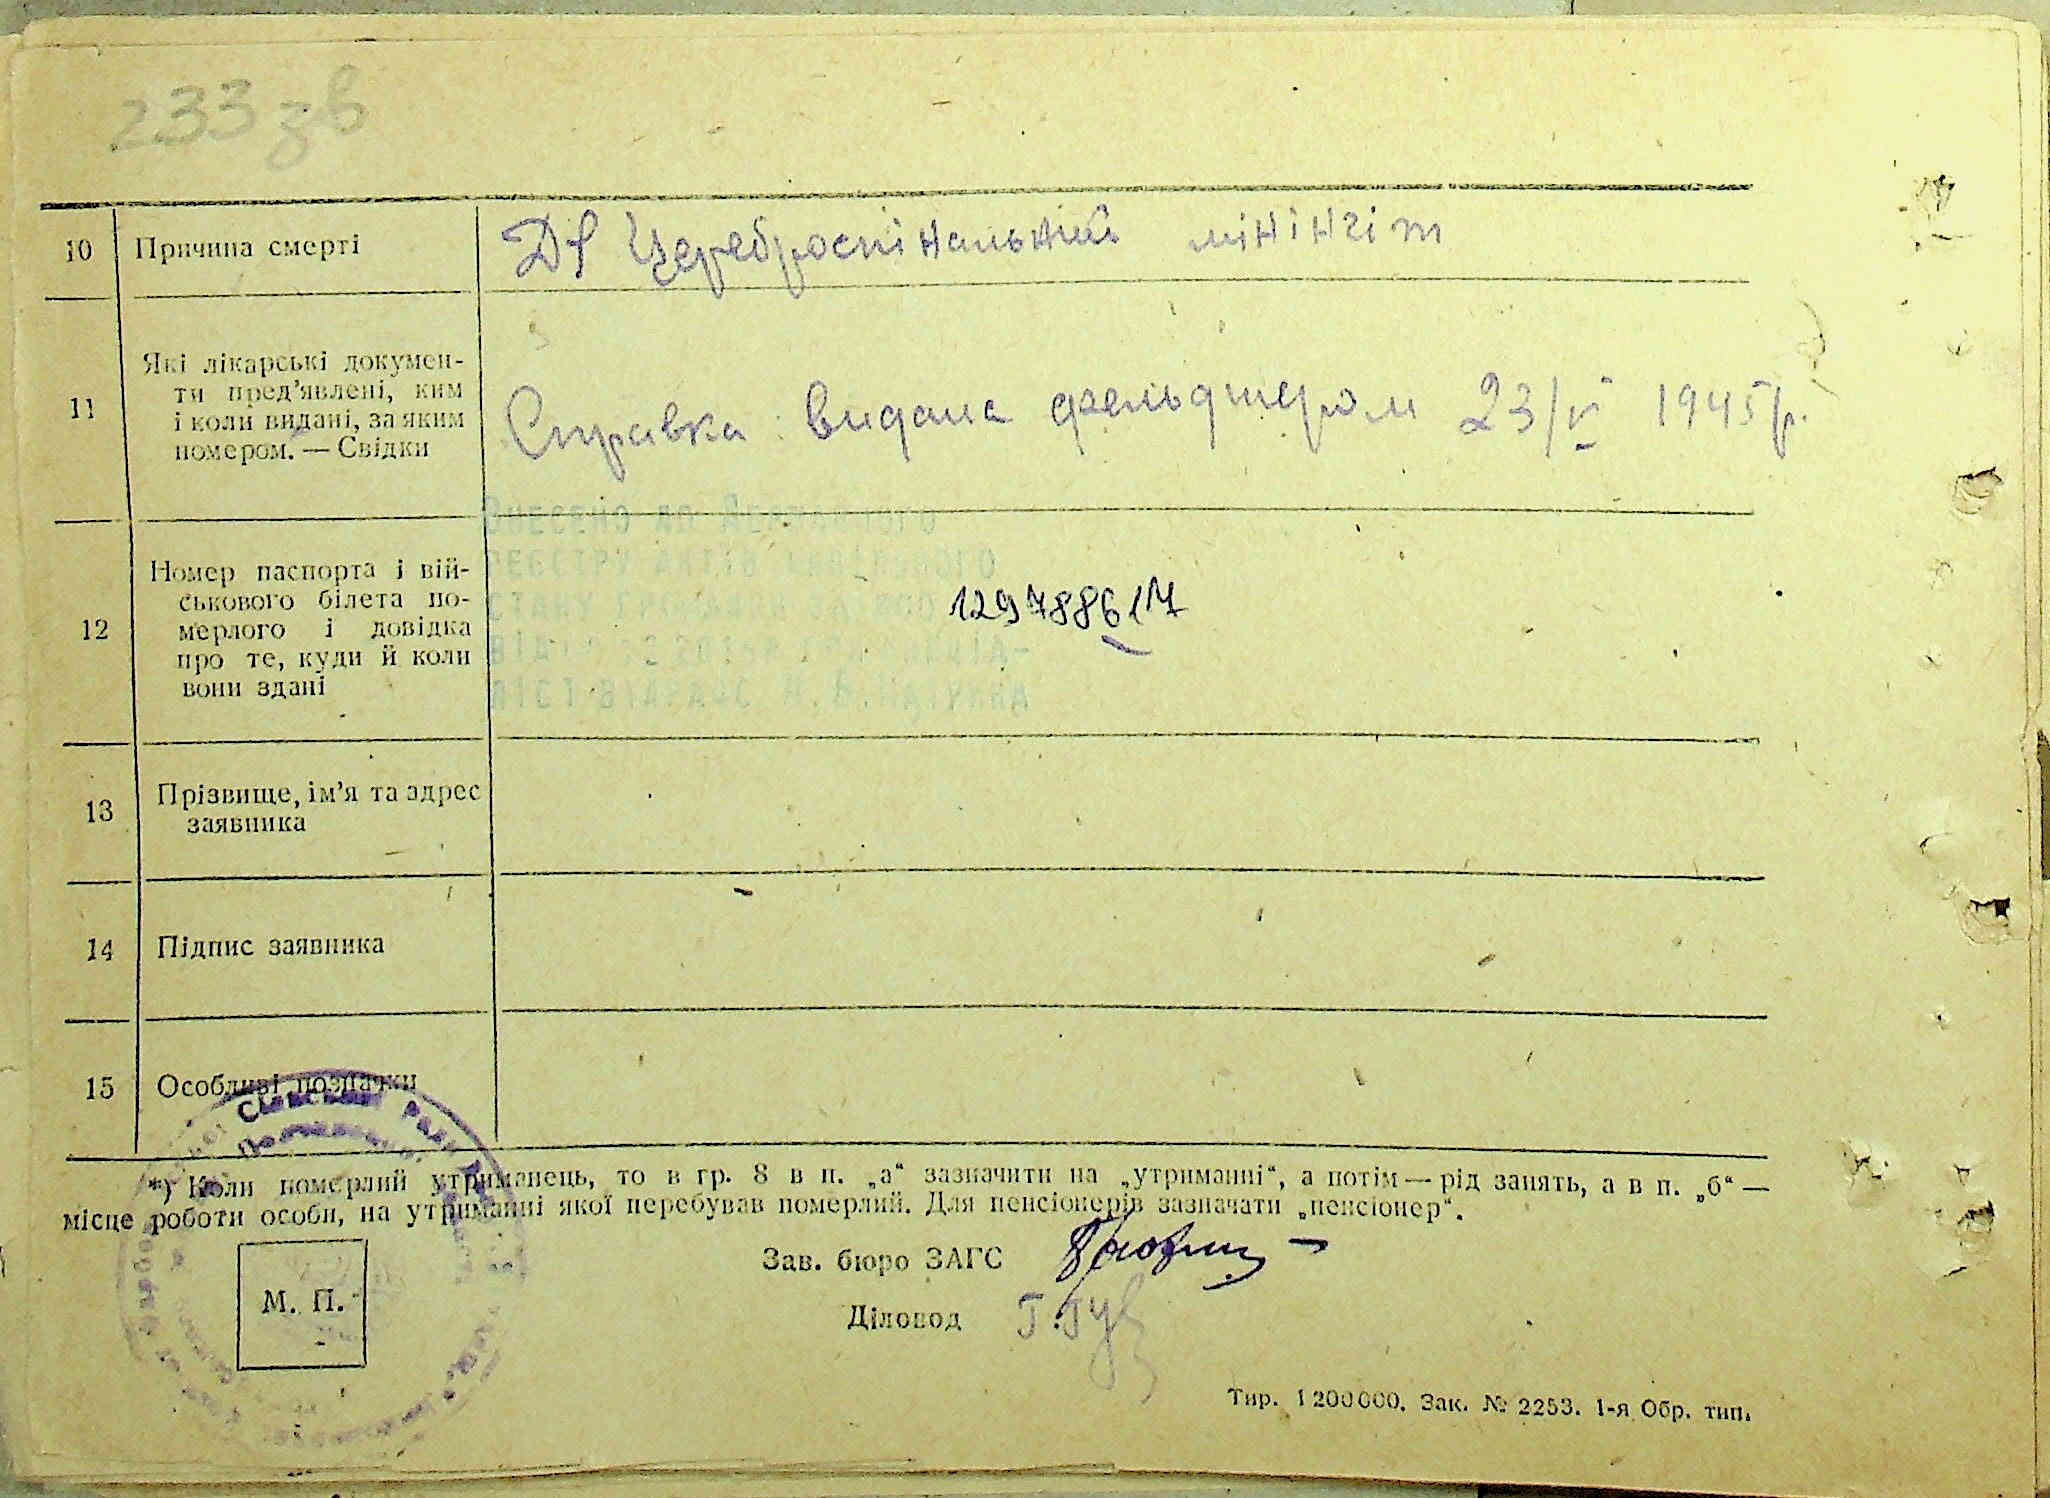 233 зв
10 Причина смерті
Ds Цереброспінальний мінінгіт
11 Які лікарські докумен-
ти пред'явлені, ким
і коли видані, за яким
номером. — Свідки
Справка видана фельдшером 23/VI 1945 р.
12 Номер паспорта і вій-
ськового білета по-
мерлого і довідка
про те, куди й коли
вони здані
ВНЕСЕНО ДО ДЕРЖАВНОГО
РЕЄСТРУ АКТІВ ЦИВІЛЬНОГО
СТАНУ ГРОМАДЯН
129788617
13 Прізвище, ім'я та адрес
заявника
14 Підпис заявника
15 Особливі позначки
*) Коли померлий утриманець, то в гр. 8 в п. „а“ зазначити на „утриманні“, а потім — рід занять, а в п. „б“ —
місце роботи особи, на утриманні якої перебував померлий. Для пенсіонерів зазначати „пенсіонер“.
Зав. бюро ЗАГС
М. П.
Діловод
Тир. 1 200 000. Зак. № 2253. 1-я Обр. тип.